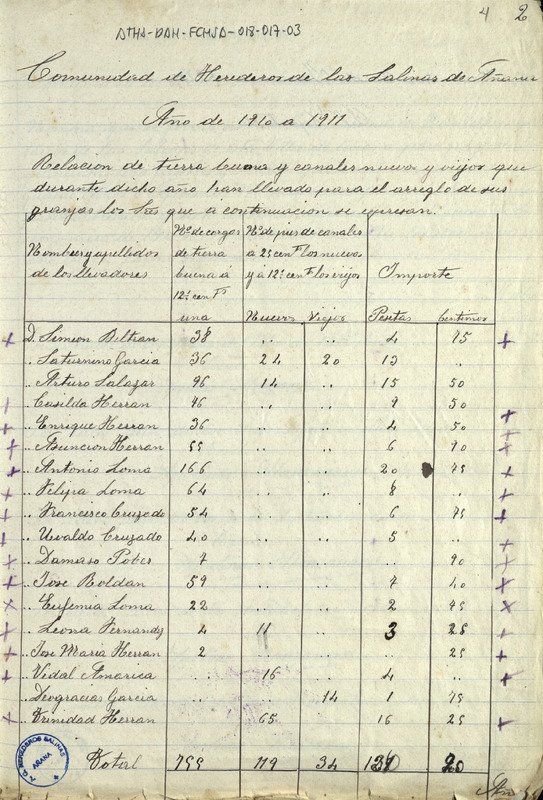 4 2
ATHA-DAH-FCHSA-018-017-03
Comunidad de Herederos de las Salinas de Añana
Año de 1910 a 1911
Relacion de tierra buena y canales nuevos y viejos que
durante dicho año han llevado para el arreglo de sus
granjas los Sres que á continuacion se espresan.
Nombre y apellidos de los llevadores | Nº de cargos de tierra buena á 12½ centˢ una | Nº de pies de canales á 25 centˢ los nuevos y á 12½ centˢ los viejos | Importe
Nuevos | Viejos | Pesetas | Centimos
D. Simeon Beltran 38 .. .. 4 75
.. Saturnino Garcia 36 24 20 13 ..
.. Arturo Salazar 96 14 .. 15 50
.. Casilda Herran 76 .. .. 9 50
.. Enrique Herran 36 .. .. 4 50
.. Asuncion Herran 55 .. .. 6 90
.. Antonio Loma 166 .. .. 20 75
.. Felipa Loma 64 .. .. 8 ..
.. Francisco Cruzado 54 .. .. 6 75
.. Uvaldo Cruzado 40 .. .. 5 ..
.. Damaso Pobes 7 .. .. .. 90
.. Jose Roldan 59 .. .. 7 40
.. Eufemia Loma 22 .. .. 2 75
.. Leona Fernandz 4 11 .. 3 25
.. Jose Maria Herran 2 .. .. .. 25
.. Vidal Amarica .. 16 .. 4 ..
.. Deogracias Garcia .. .. 14 1 75
.. Trinidad Herran .. 65 .. 16 25
Total 755 119 34 20
T. C. HEREDEROS SALINAS
AÑANA